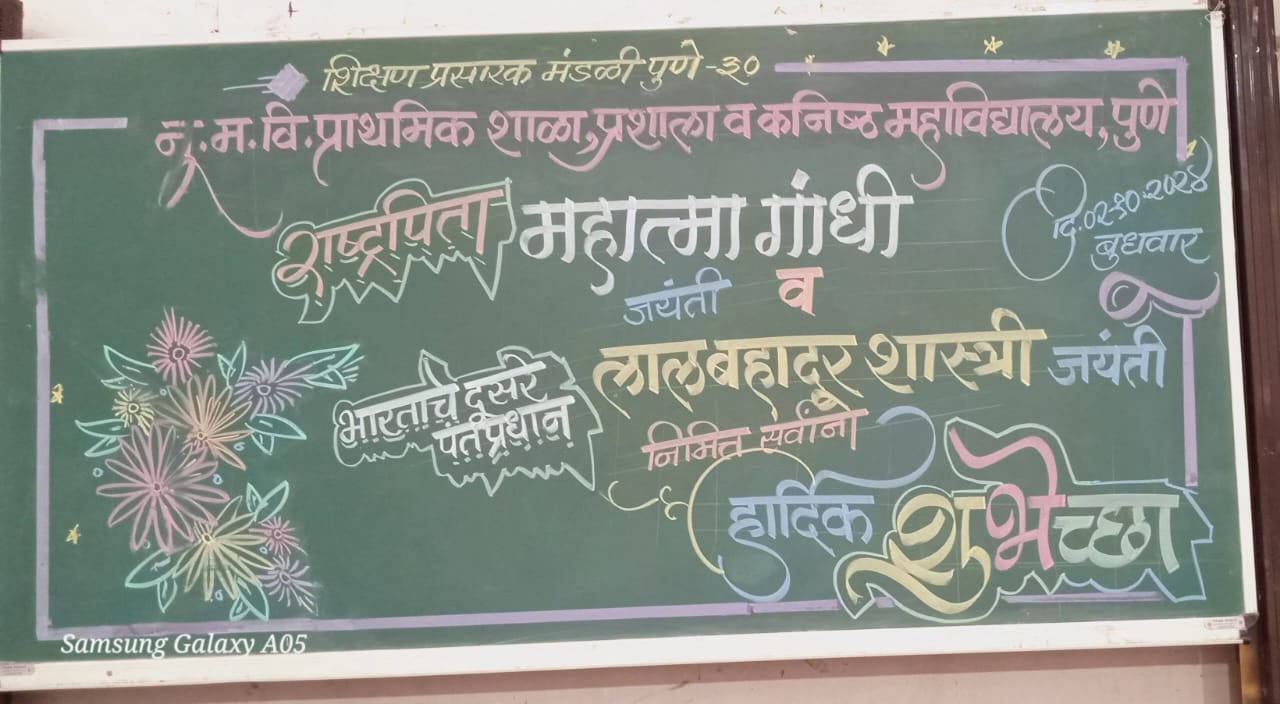 शिक्षण प्रसारक मंडळी पुणे -३०
नू.म.वि.प्राथमिक शाळा,प्रशाला व कनिष्ठ महाविद्यालय,पुणे
दि.०२-१०-२०२४
बुधवार
राष्ट्रपिता महात्मा गांधी
जयंती व
भारताचे दूसरे
पंतप्रधान
लालबहादूर शास्त्री जयंती
निमित्त सर्वांना
हार्दिक शुभेच्छा
Samsung Galaxy A05